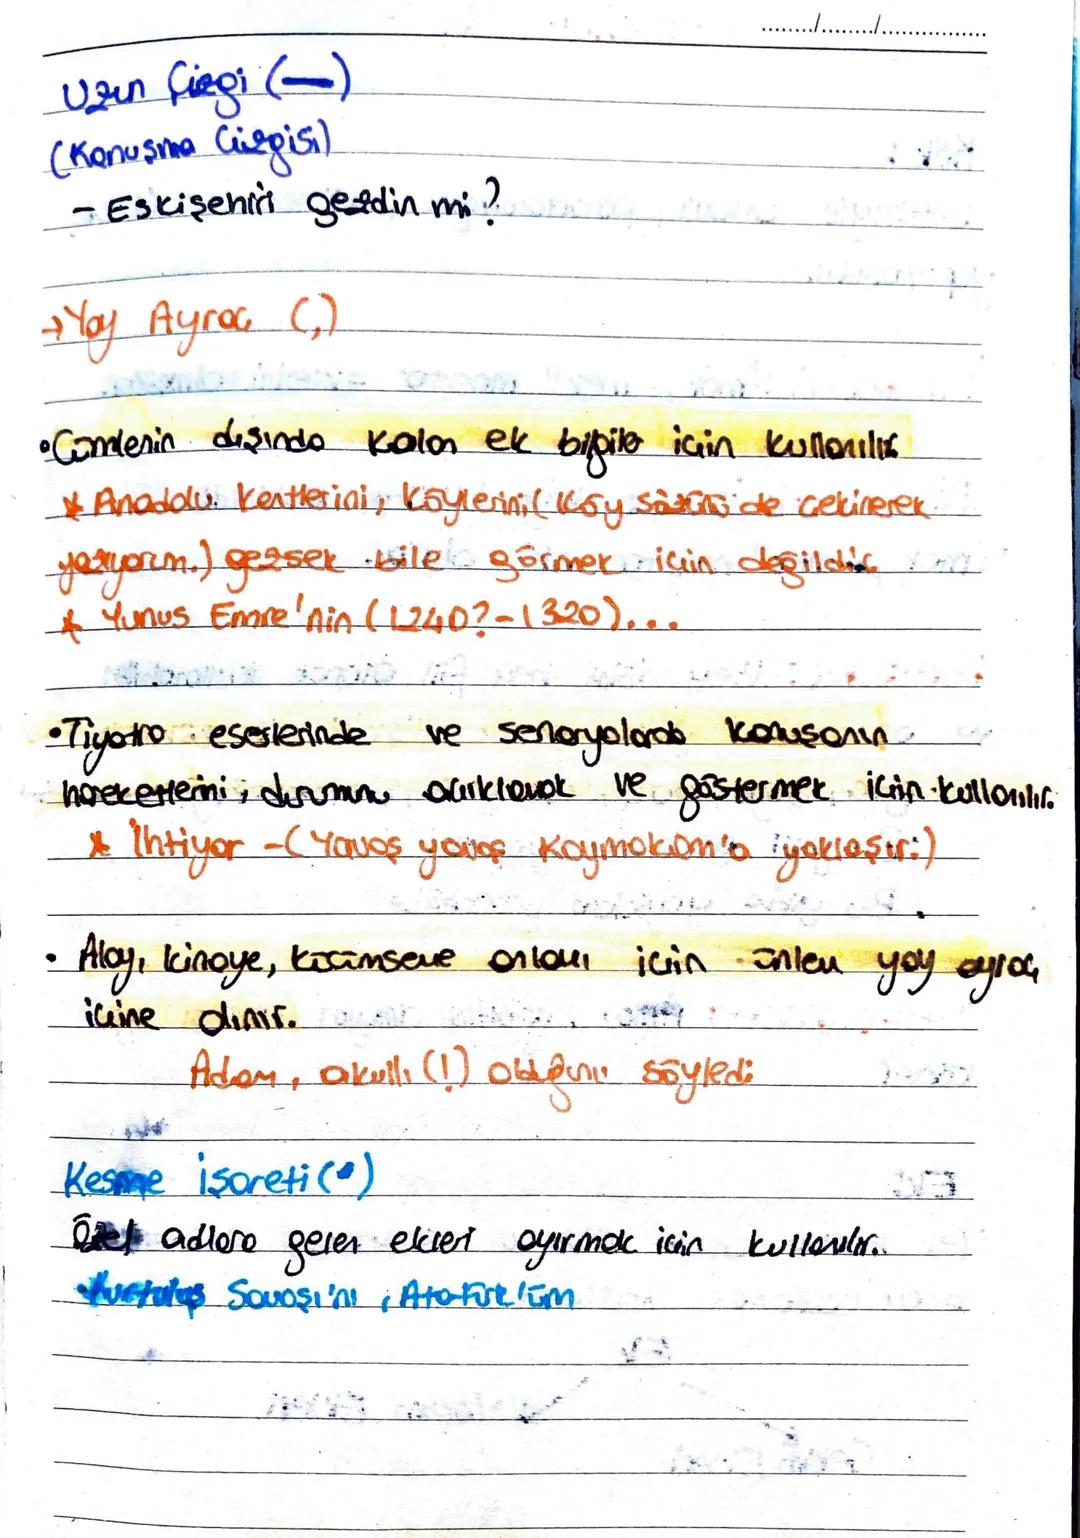 ......../......../................
Uzun Çizgi (—)
(Konuşma Çizgisi)
- Eskişehiri gezdin mi?
→ Yay Ayraç (,)
• Cümlenin dışında kalan ek bilgiler için kullanılır.
* Anadolu kentlerini, köylerini, (köy sözünü de çekinerek
yazıyorum.) gezsek bile görmek için değildir.
* Yunus Emre'nin (1240?-1320)...
• Tiyatro eserlerinde ve senaryolarda konuşanın
hareketlerini, durumunu açıklamak ve göstermek için kullanılır.
* İhtiyar -(Yavaş yavaş Kaymakam'a yaklaşır.)
• Alay, kinaye, küçümseme anlamı için ünlem yay ayraç
içine alınır.
Adam, akıllı (!) olduğunu söyledi
Kesme işareti (')
Özel adlara gelen ekleri ayırmak için kullanılır.
• Kurtuluş Savaşı'nı, Atatürk'üm